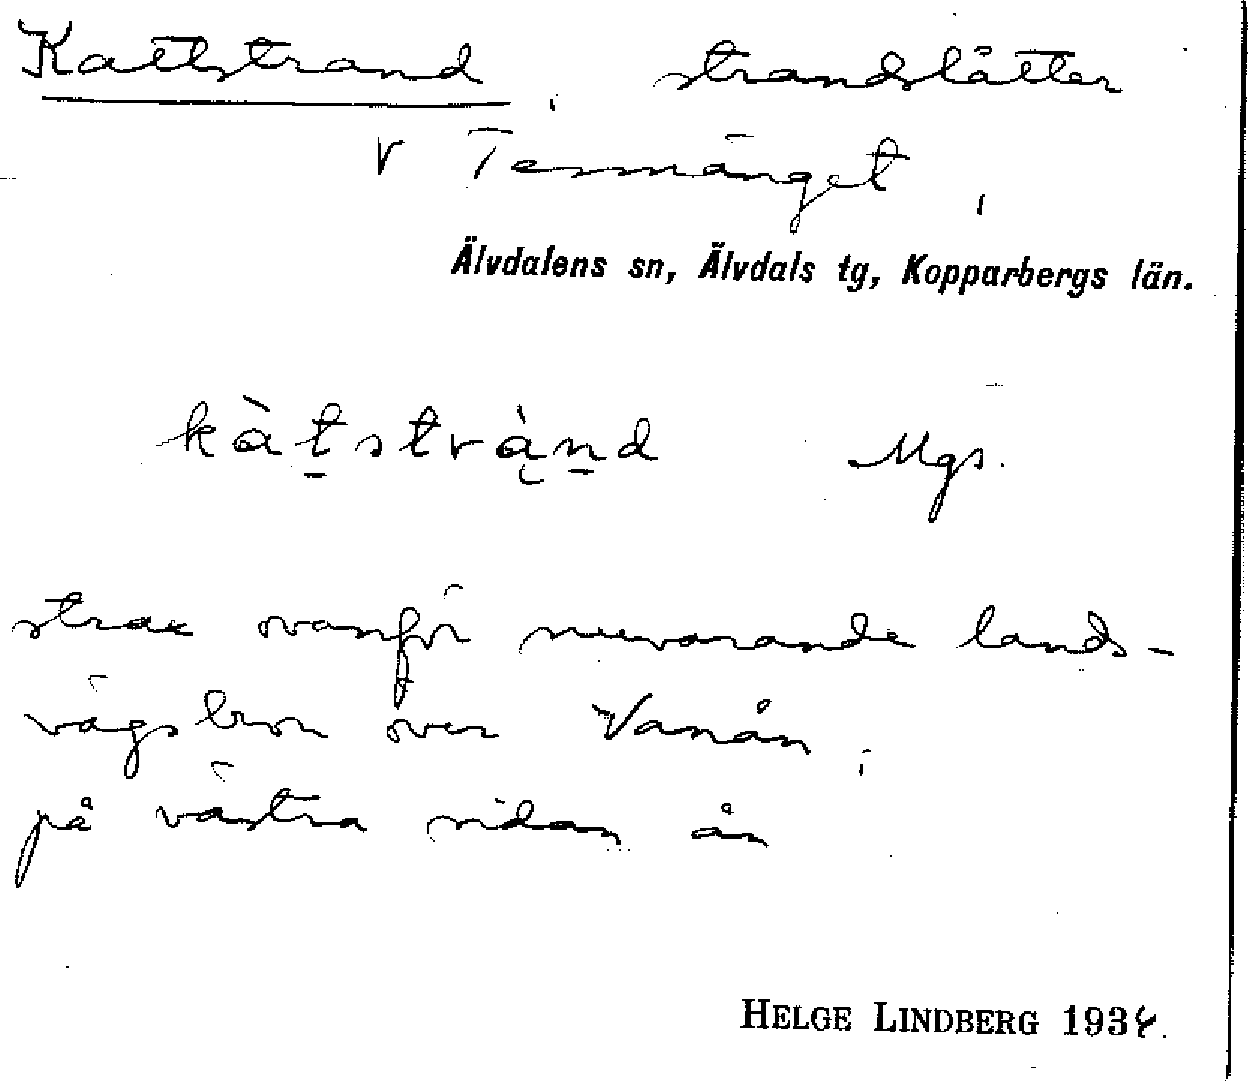 Kattstrand, strandslåtter
V Tennänget,
Älvdalens sn, Älvdals tg, Kopparbergs län.
kàt̠strą̀n̠d Mgs.
strax ovanför nuvarande lands-
vägsbron över Vanån,
på västra sidan ån
HELGE LINDBERG 1934.